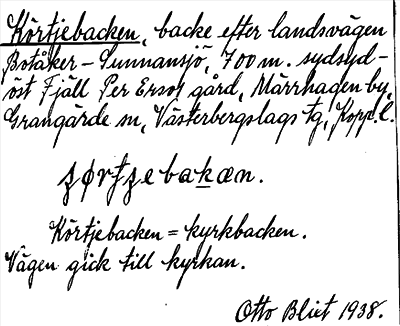 Körtjebacken, backe efter landsvägen
Botåker - Sunnansjö, 700 m. sydsyd-
öst Fjäll Per Ersos gård, Märrhagen by,
Grangärde sn, Västerbergslags tg, Kopp. l.
Körtjebacken = kyrkbacken.
Vägen gick till kyrkan.
Otto Blixt 1938.